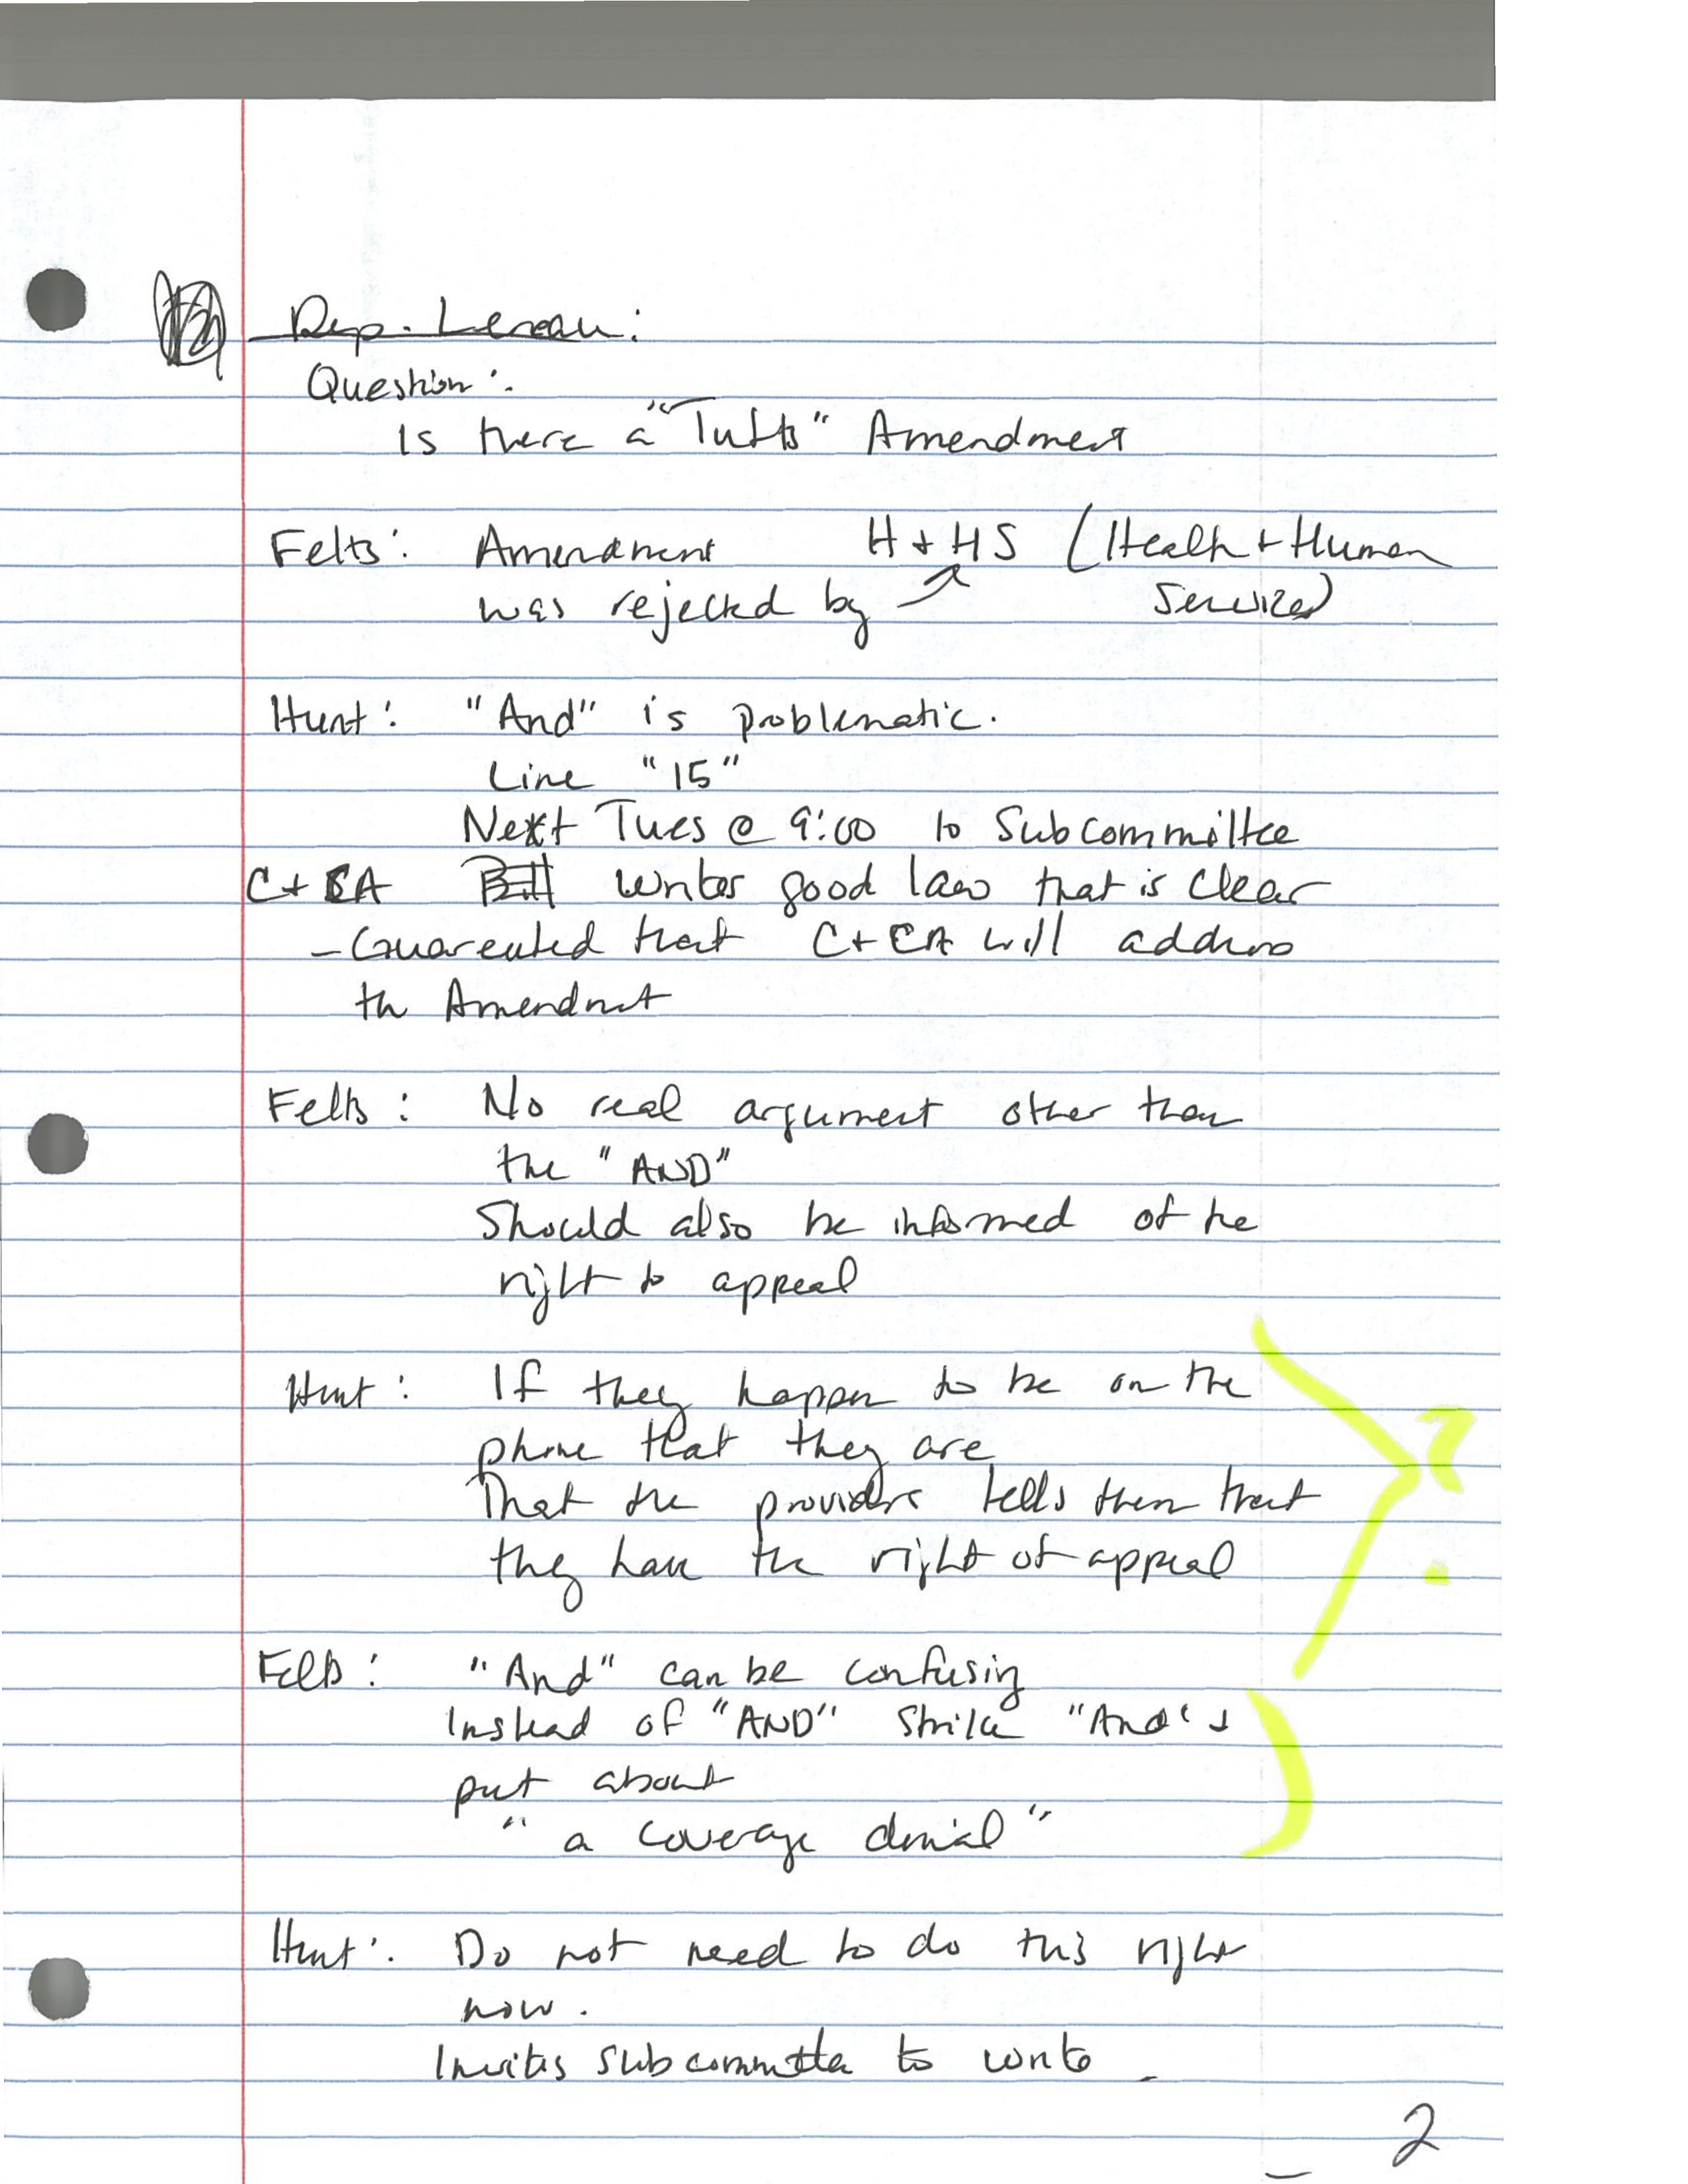 Rep. Lereau:
Question:
Is there a "Tufts" Amendment
Felts: Amendment H + HS (Health + Human
was rejected by Services)
Hunt: "And" is problematic.
Line "15"
Next Tues @ 9:00 to Subcommittee
C + CA Bill writes good law that is clear
- Guarented that C + CA will address
the Amendmnt
Felts: No real argument other than
the "AND"
Should also be informed of the
right to appeal
Hunt: If they happen to be on the
phone that they are
That the providers tells them that
they have the right of appeal
?
Felts: "And" can be confusing
Instead of "AND" Strike "And" +
put about
"a coverage denial"
Hunt: Do not need to do this right
now.
Invites subcommittee to write
2